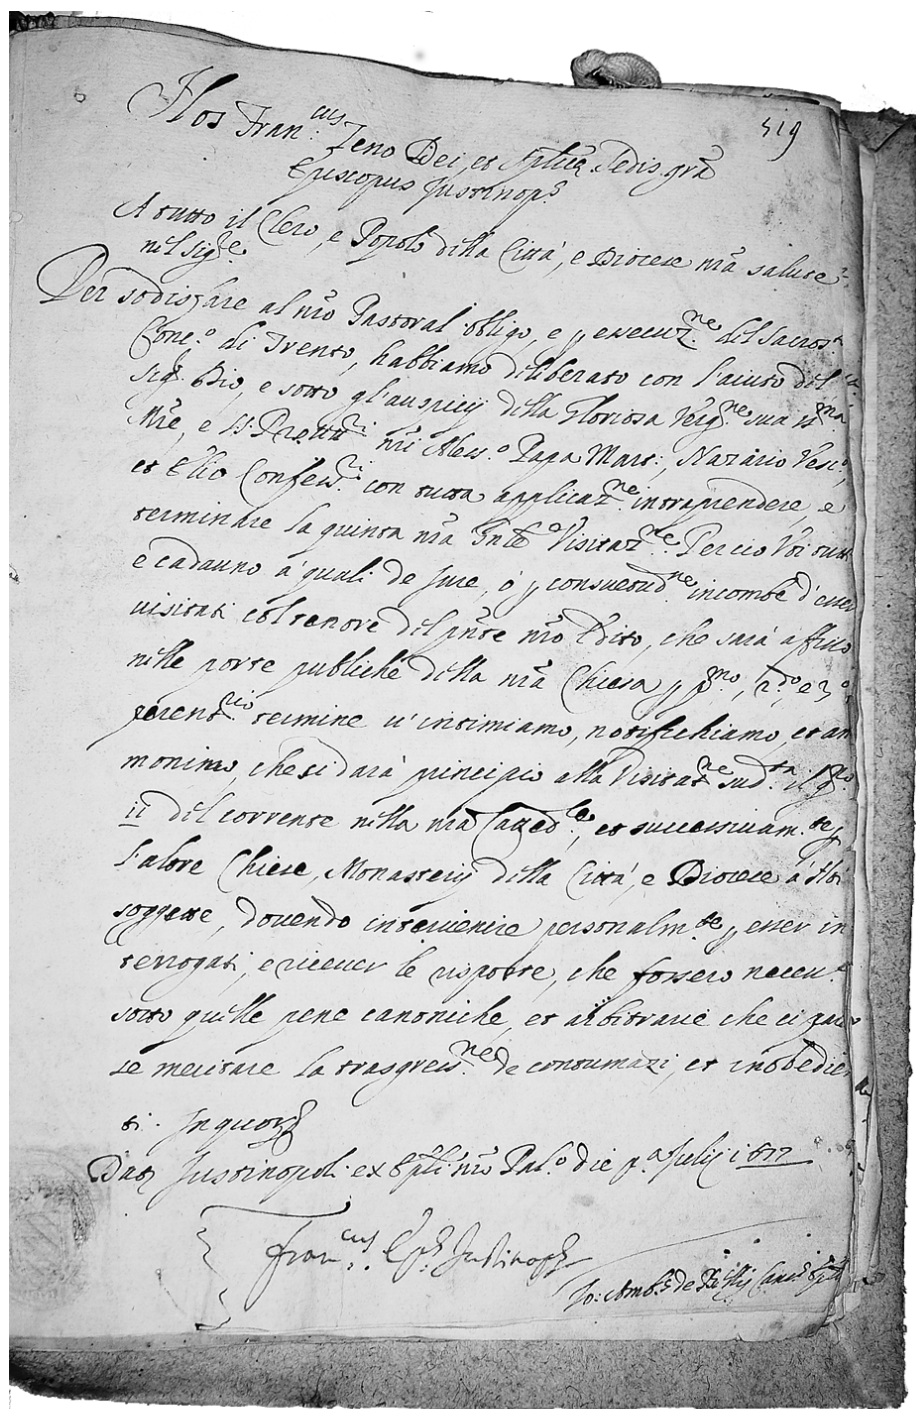 519
Nos Fran.cus Zeno Dei, et Aplicæ Sedis grã
Episcopus Justinops
A tutto il Clero, e Popolo della Città, e Diocese nr̃a salute
nel Sig.re
Per sodisfare al nr̃o Pastoral obligo, e p essecuz.ne del Sacros.to
Conc.o di Trento, habbiamo deliberato con l'aiuto del
Sig.r Dio, e sotto gl'auspicij della Gloriosa Verg.ne sua SS.ma
Mr̃e, e SS. Protett.ri nr̃i Aless.o Papa Mart:, Nazario Vesc.o,
et Elio Confess.ri con tutta applicaz.ne intraprendere, e
terminare la quinta nr̃a Visitaz.ne Perciò Voi tutti
e cadauno à quali de Jure, ò p consuetud.ne incombe d'esser
visitati col tenore del pñte nr̃o Edito, che sarà affisso
nelle porte publiche della nr̃a Chiesa p p.mo, 2.do, e 3.o
perent.rio termine v'intimiamo, notifichiamo, et am
monimo, che si darà principio alla Visitat.ne sud.ta il g.no
11 del corrente nella nr̃a Catted.le, et successivam.te p
l'altre Chiese, Monasterij della Città, e Diocese à Noi
soggette, dovendo intervenire personalm.te p esser in
terrogati, e ricever le risposte, che forsero necess.e
sotto quelle pene canoniche, et arbitrarie che ci par
se meritare la trasgress.ne de contumazi, et inobedie
ti. In quor
Dat Justinopoli ex Epli nr̃o Pal.o die p.a Julij 1677
Fran.cus Eps Justinop
Jo: Amb.s de Canc.